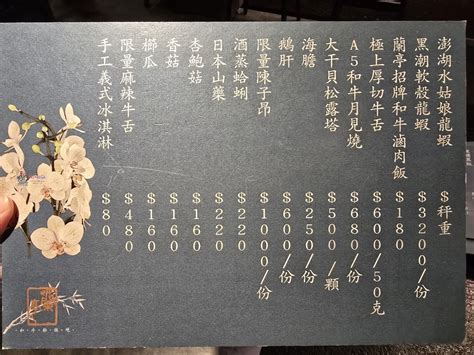 澎湖水姑娘龍蝦 $秤重
黑潮軟殼龍蝦 $3200/份
蘭亭招牌和牛滷肉飯 $180
極上厚切牛舌 $600/50克
A5和牛月見燒 $680/份
大干貝松露塔 $500/顆
海膽 $250/份
鵝肝 $600/份
限量陳子昂 $1000/份
酒蒸蛤蜊 $220
日本山藥 $220
杏鮑菇 $160
香菇 $160
櫛瓜 $160
限量麻辣牛舌 $480
手工義式冰淇淋 $80